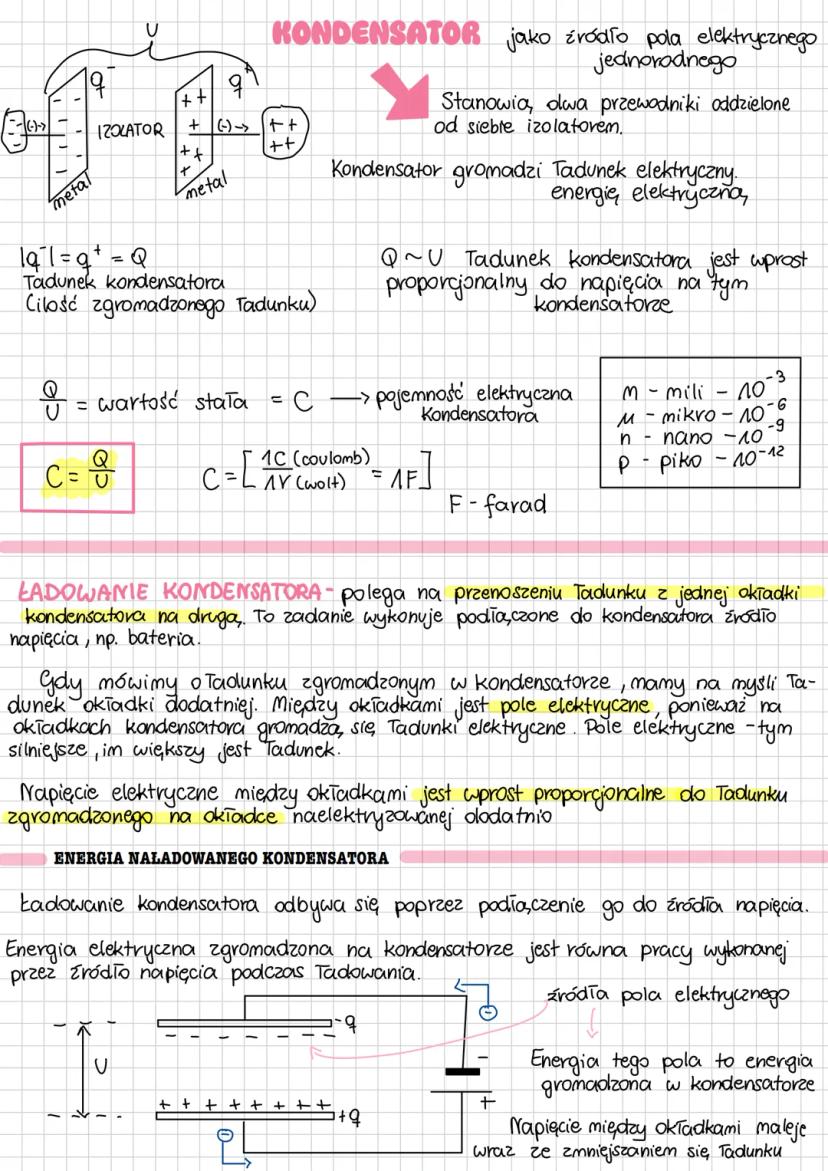 KONDENSATOR jako źródło pola elektrycznego
jednorodnego
U
q⁻
q⁺
Stanowią dwa przewodniki oddzielone
od siebie izolatorem.
(-)→
IZOLATOR
(-)→
metal
metal
Kondensator gromadzi ładunek elektryczny.
energię elektryczną
|q⁻| = q⁺ = Q
ładunek kondensatora
(ilość zgromadzonego ładunku)
Q ~ U ładunek kondensatora jest wprost
proporcjonalny do napięcia na tym
kondensatorze
Q/U = wartość stała = C → pojemność elektryczna
kondensatora
m - mili - 10⁻³
μ - mikro - 10⁻⁶
n - nano - 10⁻⁹
p - piko - 10⁻¹²
C = Q/U
C = [1C (coulomb) / 1V (wolt) = 1F]
F - farad
ŁADOWANIE KONDENSATORA - polega na przenoszeniu ładunku z jednej okładki
kondensatora na drugą. To zadanie wykonuje podłączone do kondensatora źródło
napięcia, np. bateria.
Gdy mówimy o ładunku zgromadzonym w kondensatorze, mamy na myśli ła-
dunek okładki dodatniej. Między okładkami jest pole elektryczne, ponieważ na
okładkach kondensatora gromadzą się ładunki elektryczne. Pole elektryczne - tym
silniejsze, im większy jest ładunek.
Napięcie elektryczne między okładkami jest wprost proporcjonalne do ładunku
zgromadzonego na okładce naelektryzowanej dodatnio
ENERGIA NAŁADOWANEGO KONDENSATORA
Ładowanie kondensatora odbywa się poprzez podłączenie go do źródła napięcia.
Energia elektryczna zgromadzona na kondensatorze jest równa pracy wykonanej
przez źródło napięcia podczas ładowania.
źródła pola elektrycznego
-q
U
Energia tego pola to energia
gromadzona w kondensatorze
-
+
+ + + + + + + +
+q
Napięcie między okładkami maleje
wraz ze zmniejszaniem się ładunku